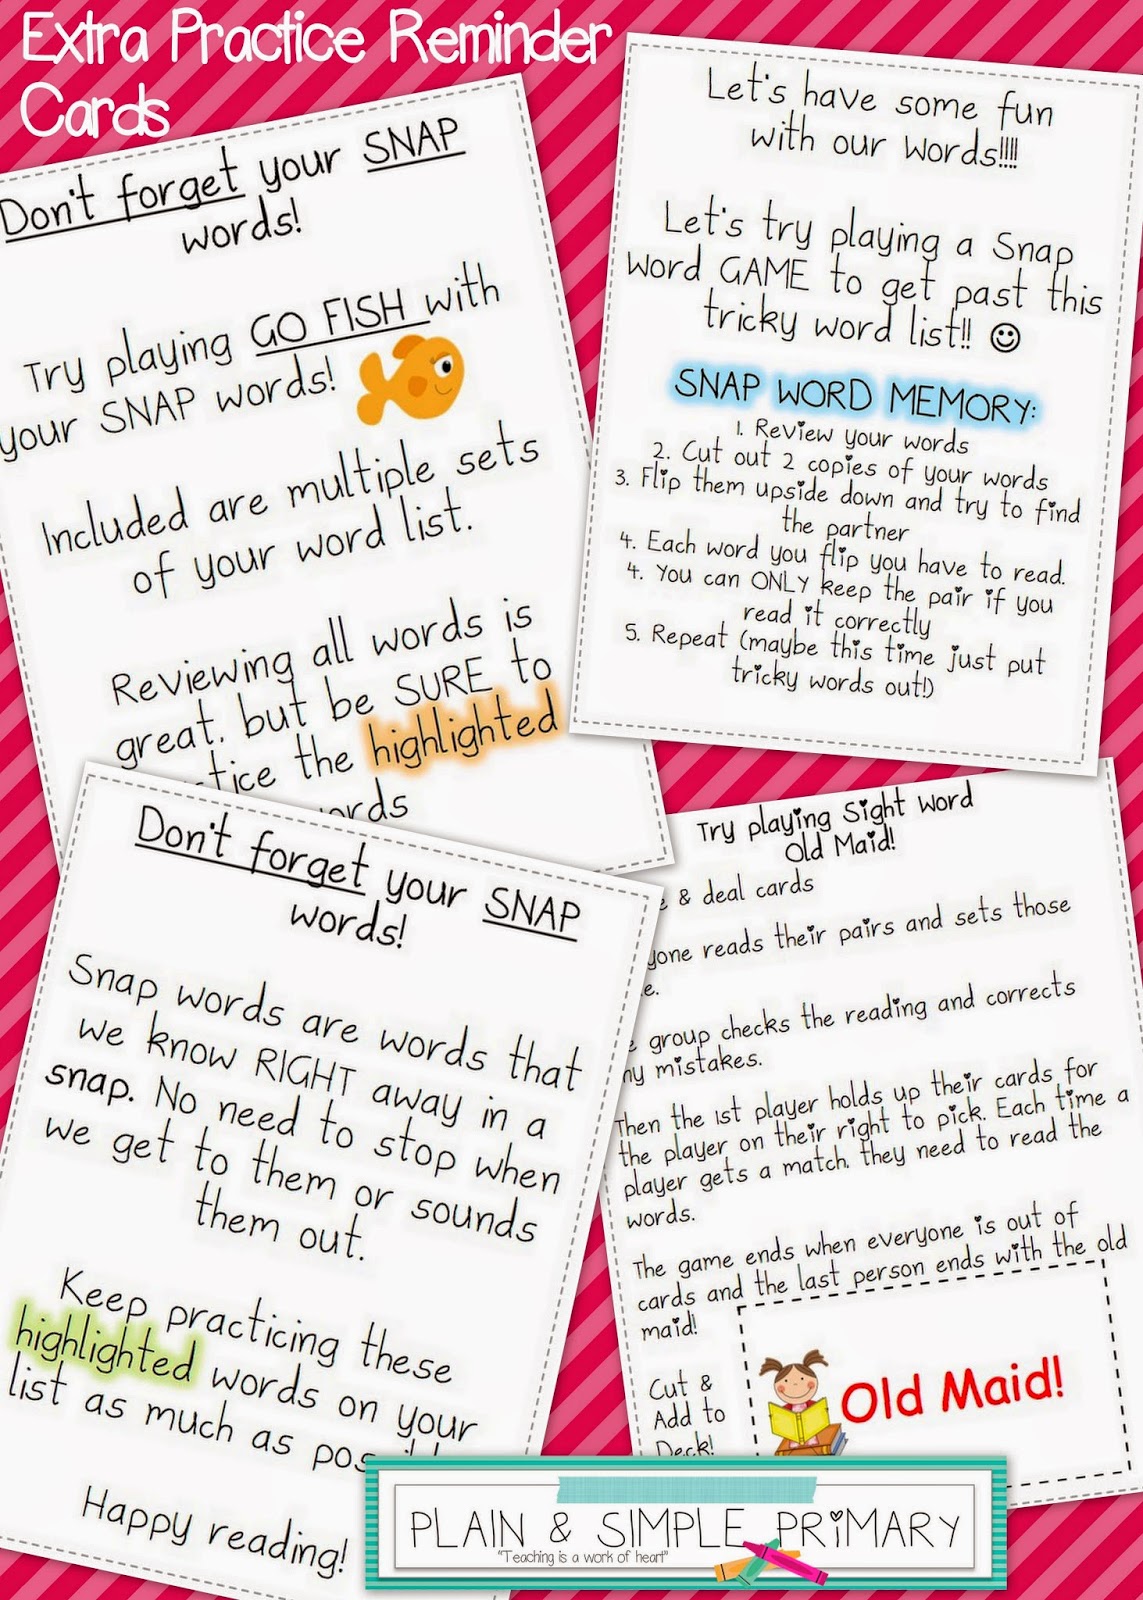 Extra Practice Reminder
Cards
Don't forget your SNAP
words!
Try playing GO FISH with
your SNAP words!
Included are multiple sets
of your word list.
Reviewing all words is
great, but be SURE to
the highlighted
Let's have some fun
with our words!!!!
Let's try playing a Snap
word GAME to get past this
tricky word list!! ☺
SNAP WORD MEMORY:
1. Review your words
2. Cut out 2 copies of your words
3. Flip them upside down and try to find
the partner
4. Each word you flip you have to read.
4. You can ONLY keep the pair if you
read it correctly
5. Repeat (maybe this time just put
tricky words out!)
Don't forget your SNAP
words!
Snap words are words that
we know RIGHT away in a
snap. No need to stop when
we get to them or sounds
them out.
Keep practicing these
highlighted words on your
list as much as
Happy reading!
Try playing Sight Word
Old Maid!
& deal cards
reads their pairs and sets those
group checks the reading and corrects
mistakes.
Then the 1st player holds up their cards for
the player on their right to pick. Each time a
player gets a match, they need to read the
words.
The game ends when everyone is out of
cards and the last person ends with the old
maid!
Cut &
Add to
Deck!
Old Maid!
PLAIN & SIMPLE PRIMARY
"Teaching is a work of heart"